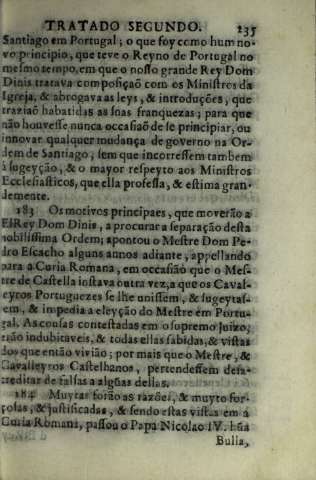 TRATADO SEGUNDO. 235
Santiago em Portugal; o que foy como hum no-
vo principio, que teve o Reyno de Portugal no
mesmo tempo, em que o nosso grande Rey Dom
Dinis tratava composiçaõ com os Ministros da
Igreja, & abrogava as leys, & introduções, que
traziaõ habatidas as suas franquezas; para que
não houvesse nunca occasiaõ de se principiar, ou
innovar qualquer mudança de governo na Or-
dem de Santiago, sem que incorressem tambem
à sugeyção, & o mayor respeyto aos Ministros
Ecclesiasticos, que ella professa, & estima gran-
demente.
183 Os motivos principaes, que moverão a
ElRey Dom Dinis, a procurar a separação desta
nobilissima Ordem; apontou o Mestre Dom Pe-
dro Escacho alguns annos adiante, appellando
para a Curia Romana, em occasião que o Mes-
tre de Castella instava outra vez, a que os Caval-
eyros Portuguezes se lhe unissem, & sugeytas-
em, & impedia a eleyção do Mestre em Portu-
gal. As cousas contestadas em o supremo Juizo,
são indubitaveis, & todas ellas sabidas, & vistas
dos que então vivião; por mais que o Mestre, &
Cavalleyros Castelhanos, pertendessem desa-
creditar de falsas a algũas dellas.
184 Muytas forão as razões, & muyto for-
çosas, & justificadas, & sendo estas vistas em a
Curia Romana, passou o Papa Nicolao IV. hũa
Bulla,